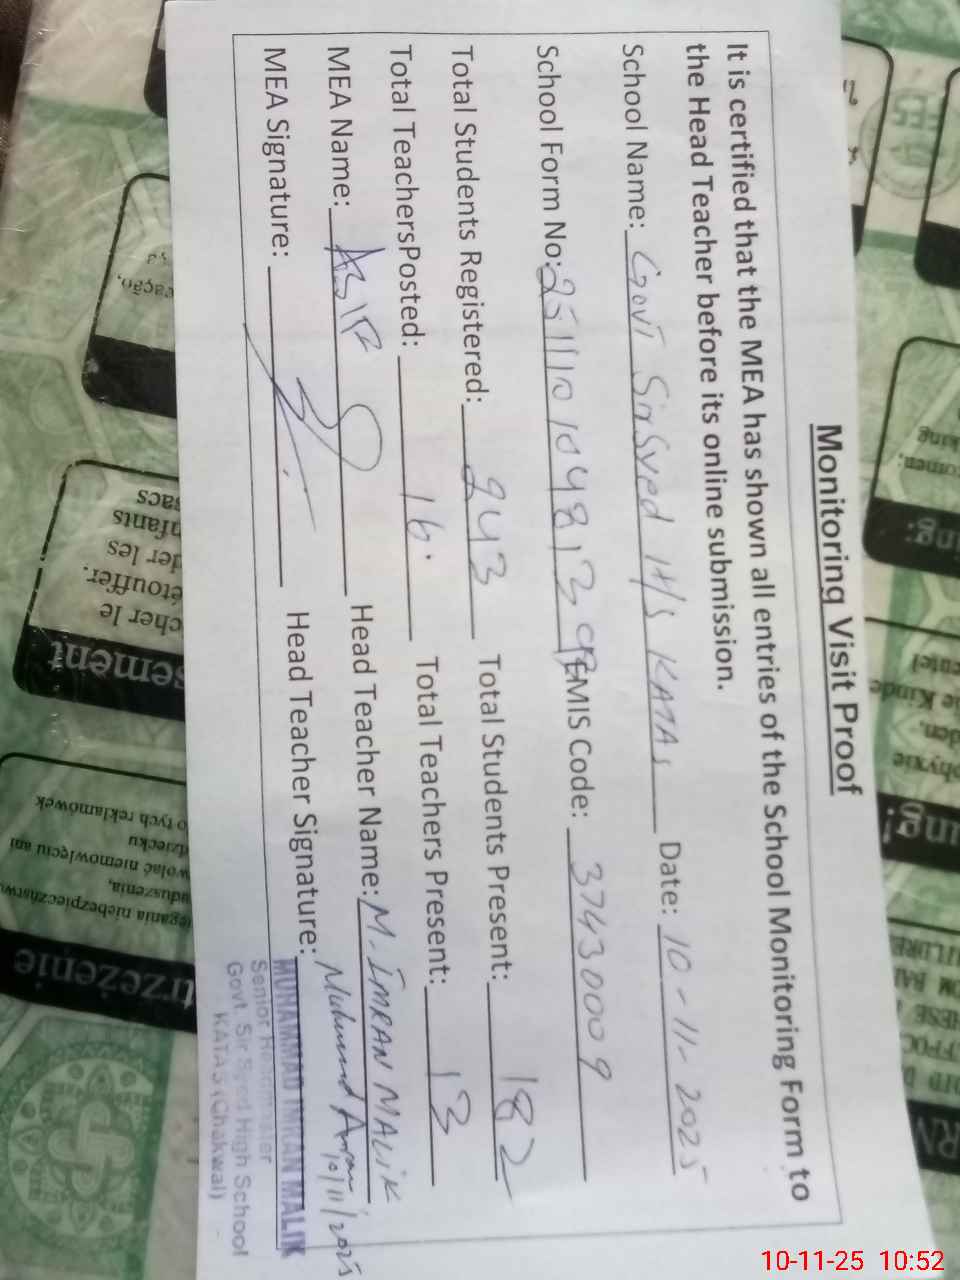 Monitoring Visit Proof
It is certified that the MEA has shown all entries of the School Monitoring Form to
the Head Teacher before its online submission.
School Name: Govt Sir Syed H/S KATAS Date: 10-11-2025
School Form No: EMIS Code: 37430009
Total Students Registered: 243 Total Students Present: 182
Total TeachersPosted: 16. Total Teachers Present: 13
MEA Name: ASIF Head Teacher Name: M. IMRAN MALIK
MEA Signature: Head Teacher Signature:
10/11/2025
MUHAMMAD IMRAN MALIK
Senior Headmaster
Govt. Sir Syed High School
KATAS (Chakwal)
sacs
nfants
der les
étouffer.
cher le
sement
o tych reklamówek
dziecku
wolać niemowlęciu ani
duszenia,
egania niebezpieczeństwu
trzeżenie
10-11-25 10:52